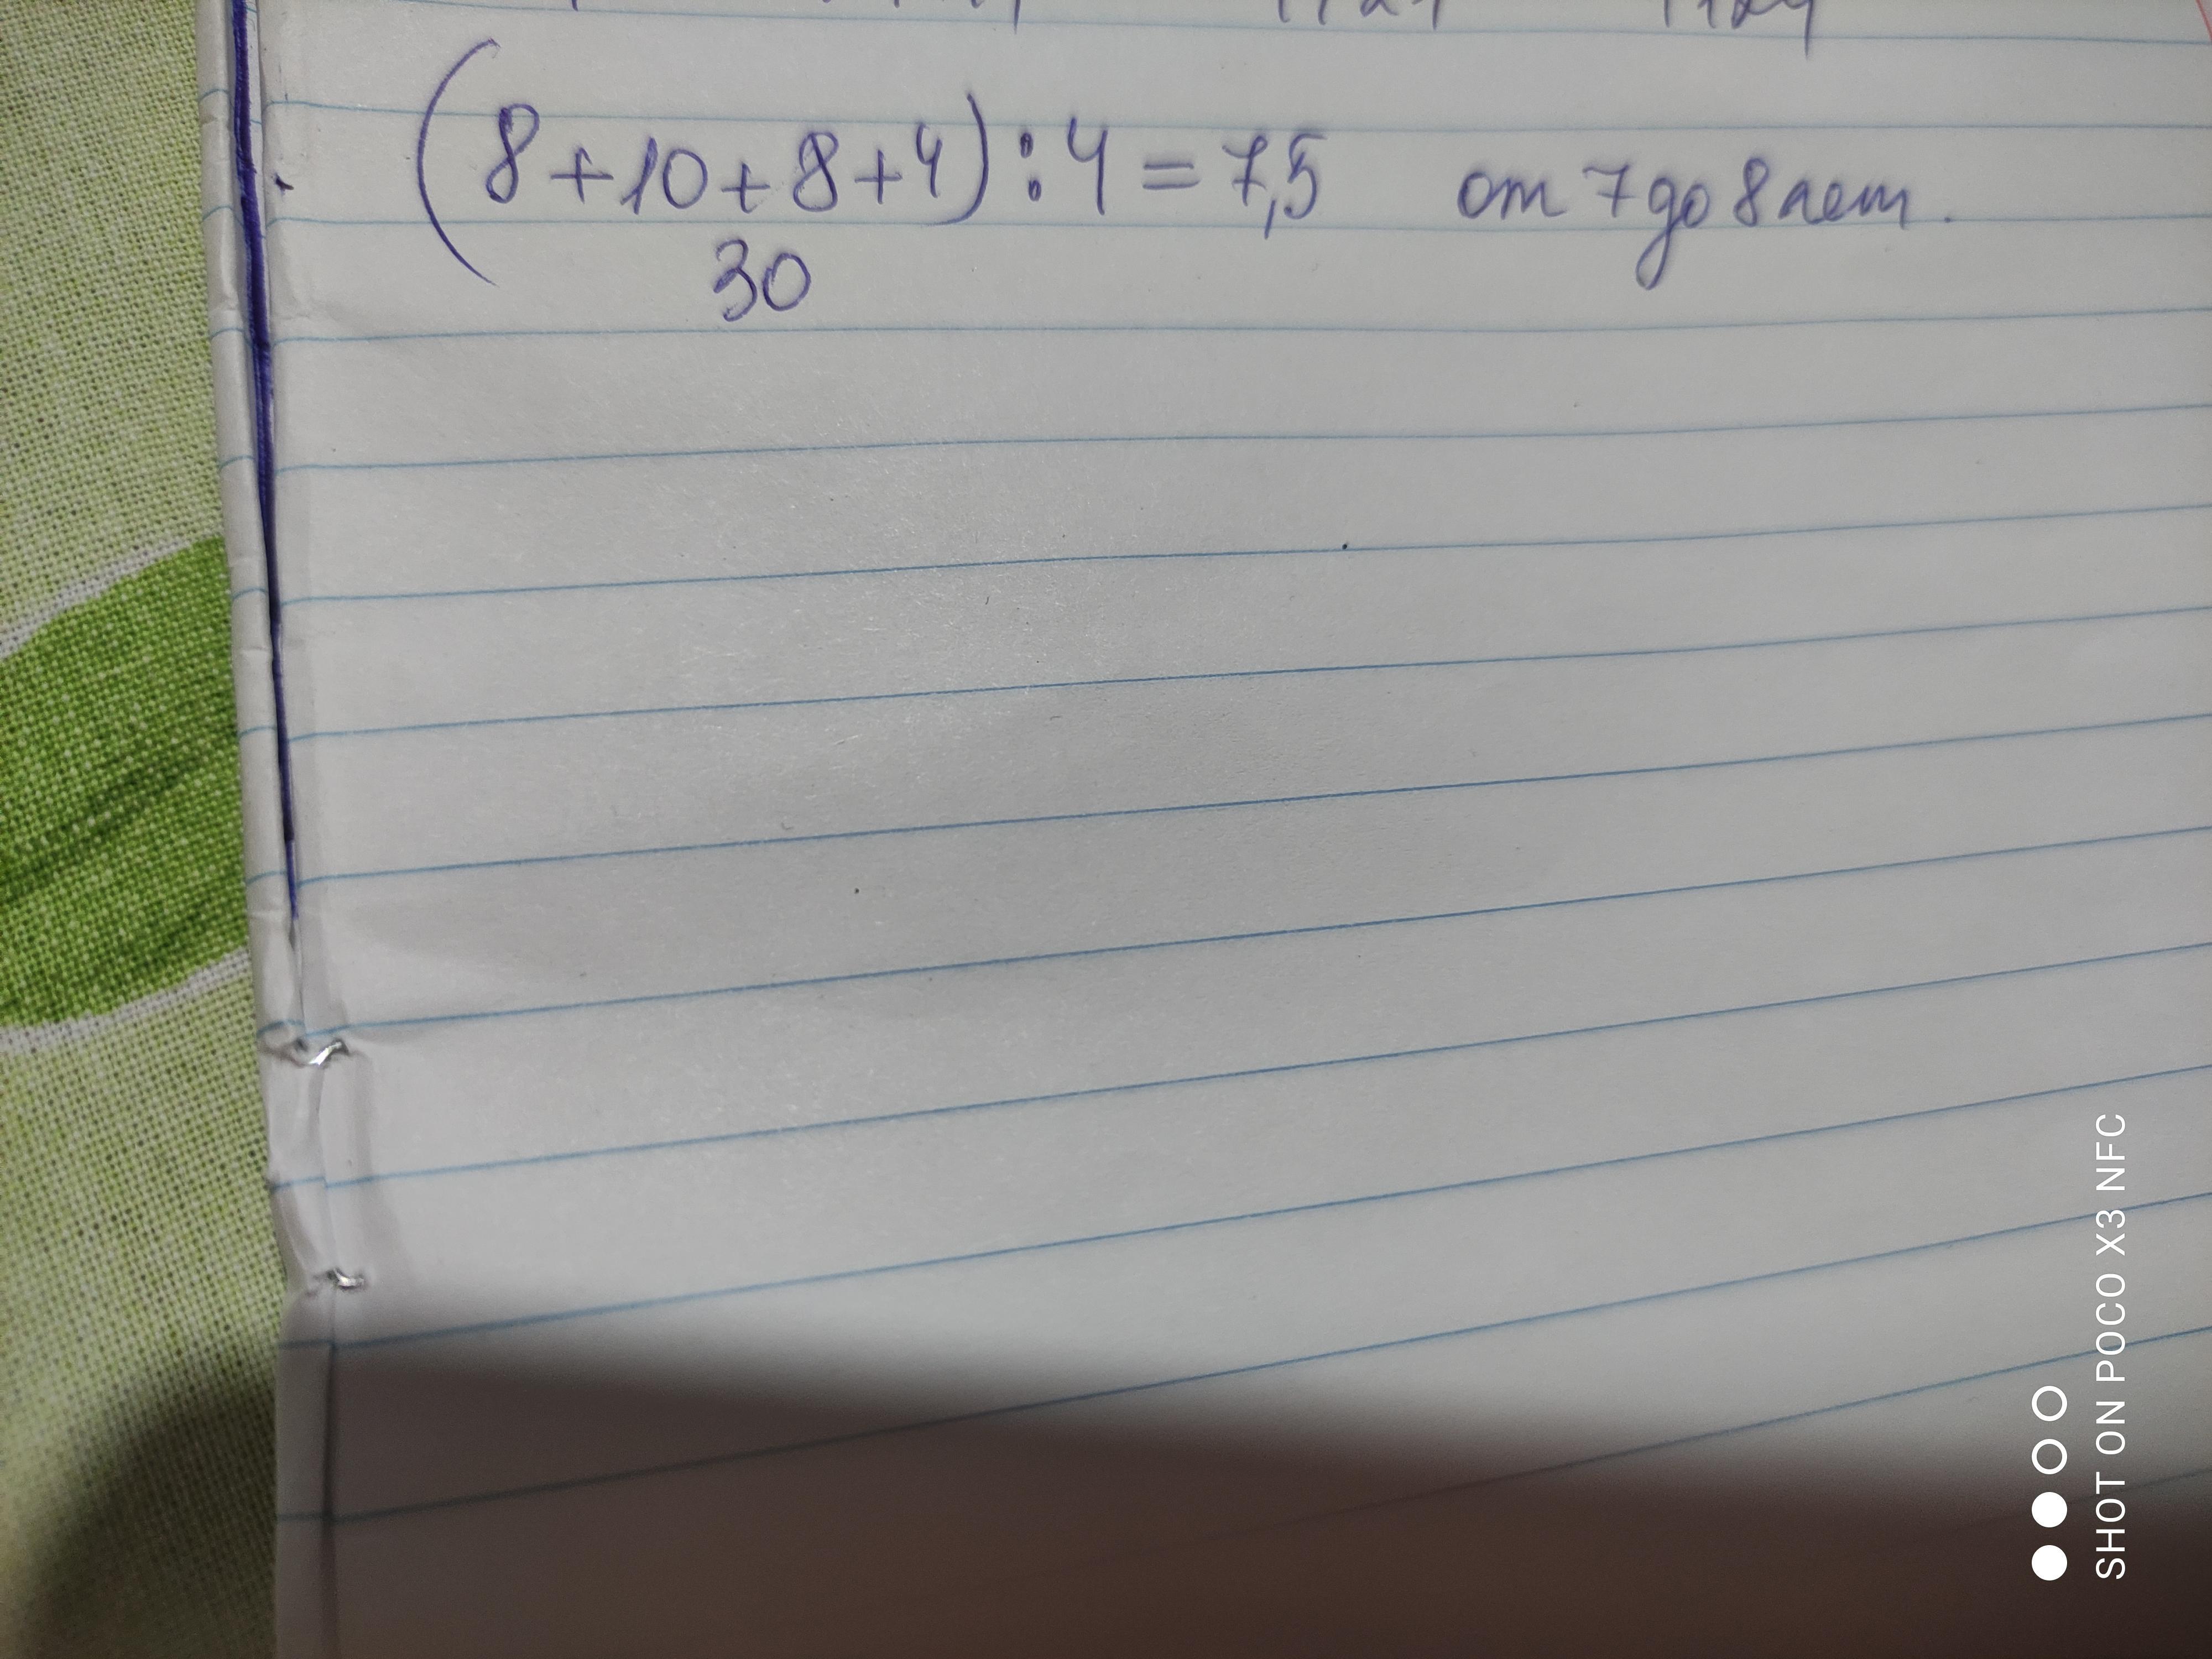 (8+10+8+4):4=7,5 от 7 до 8 лет.
30
SHOT ON POCO X3 NFC